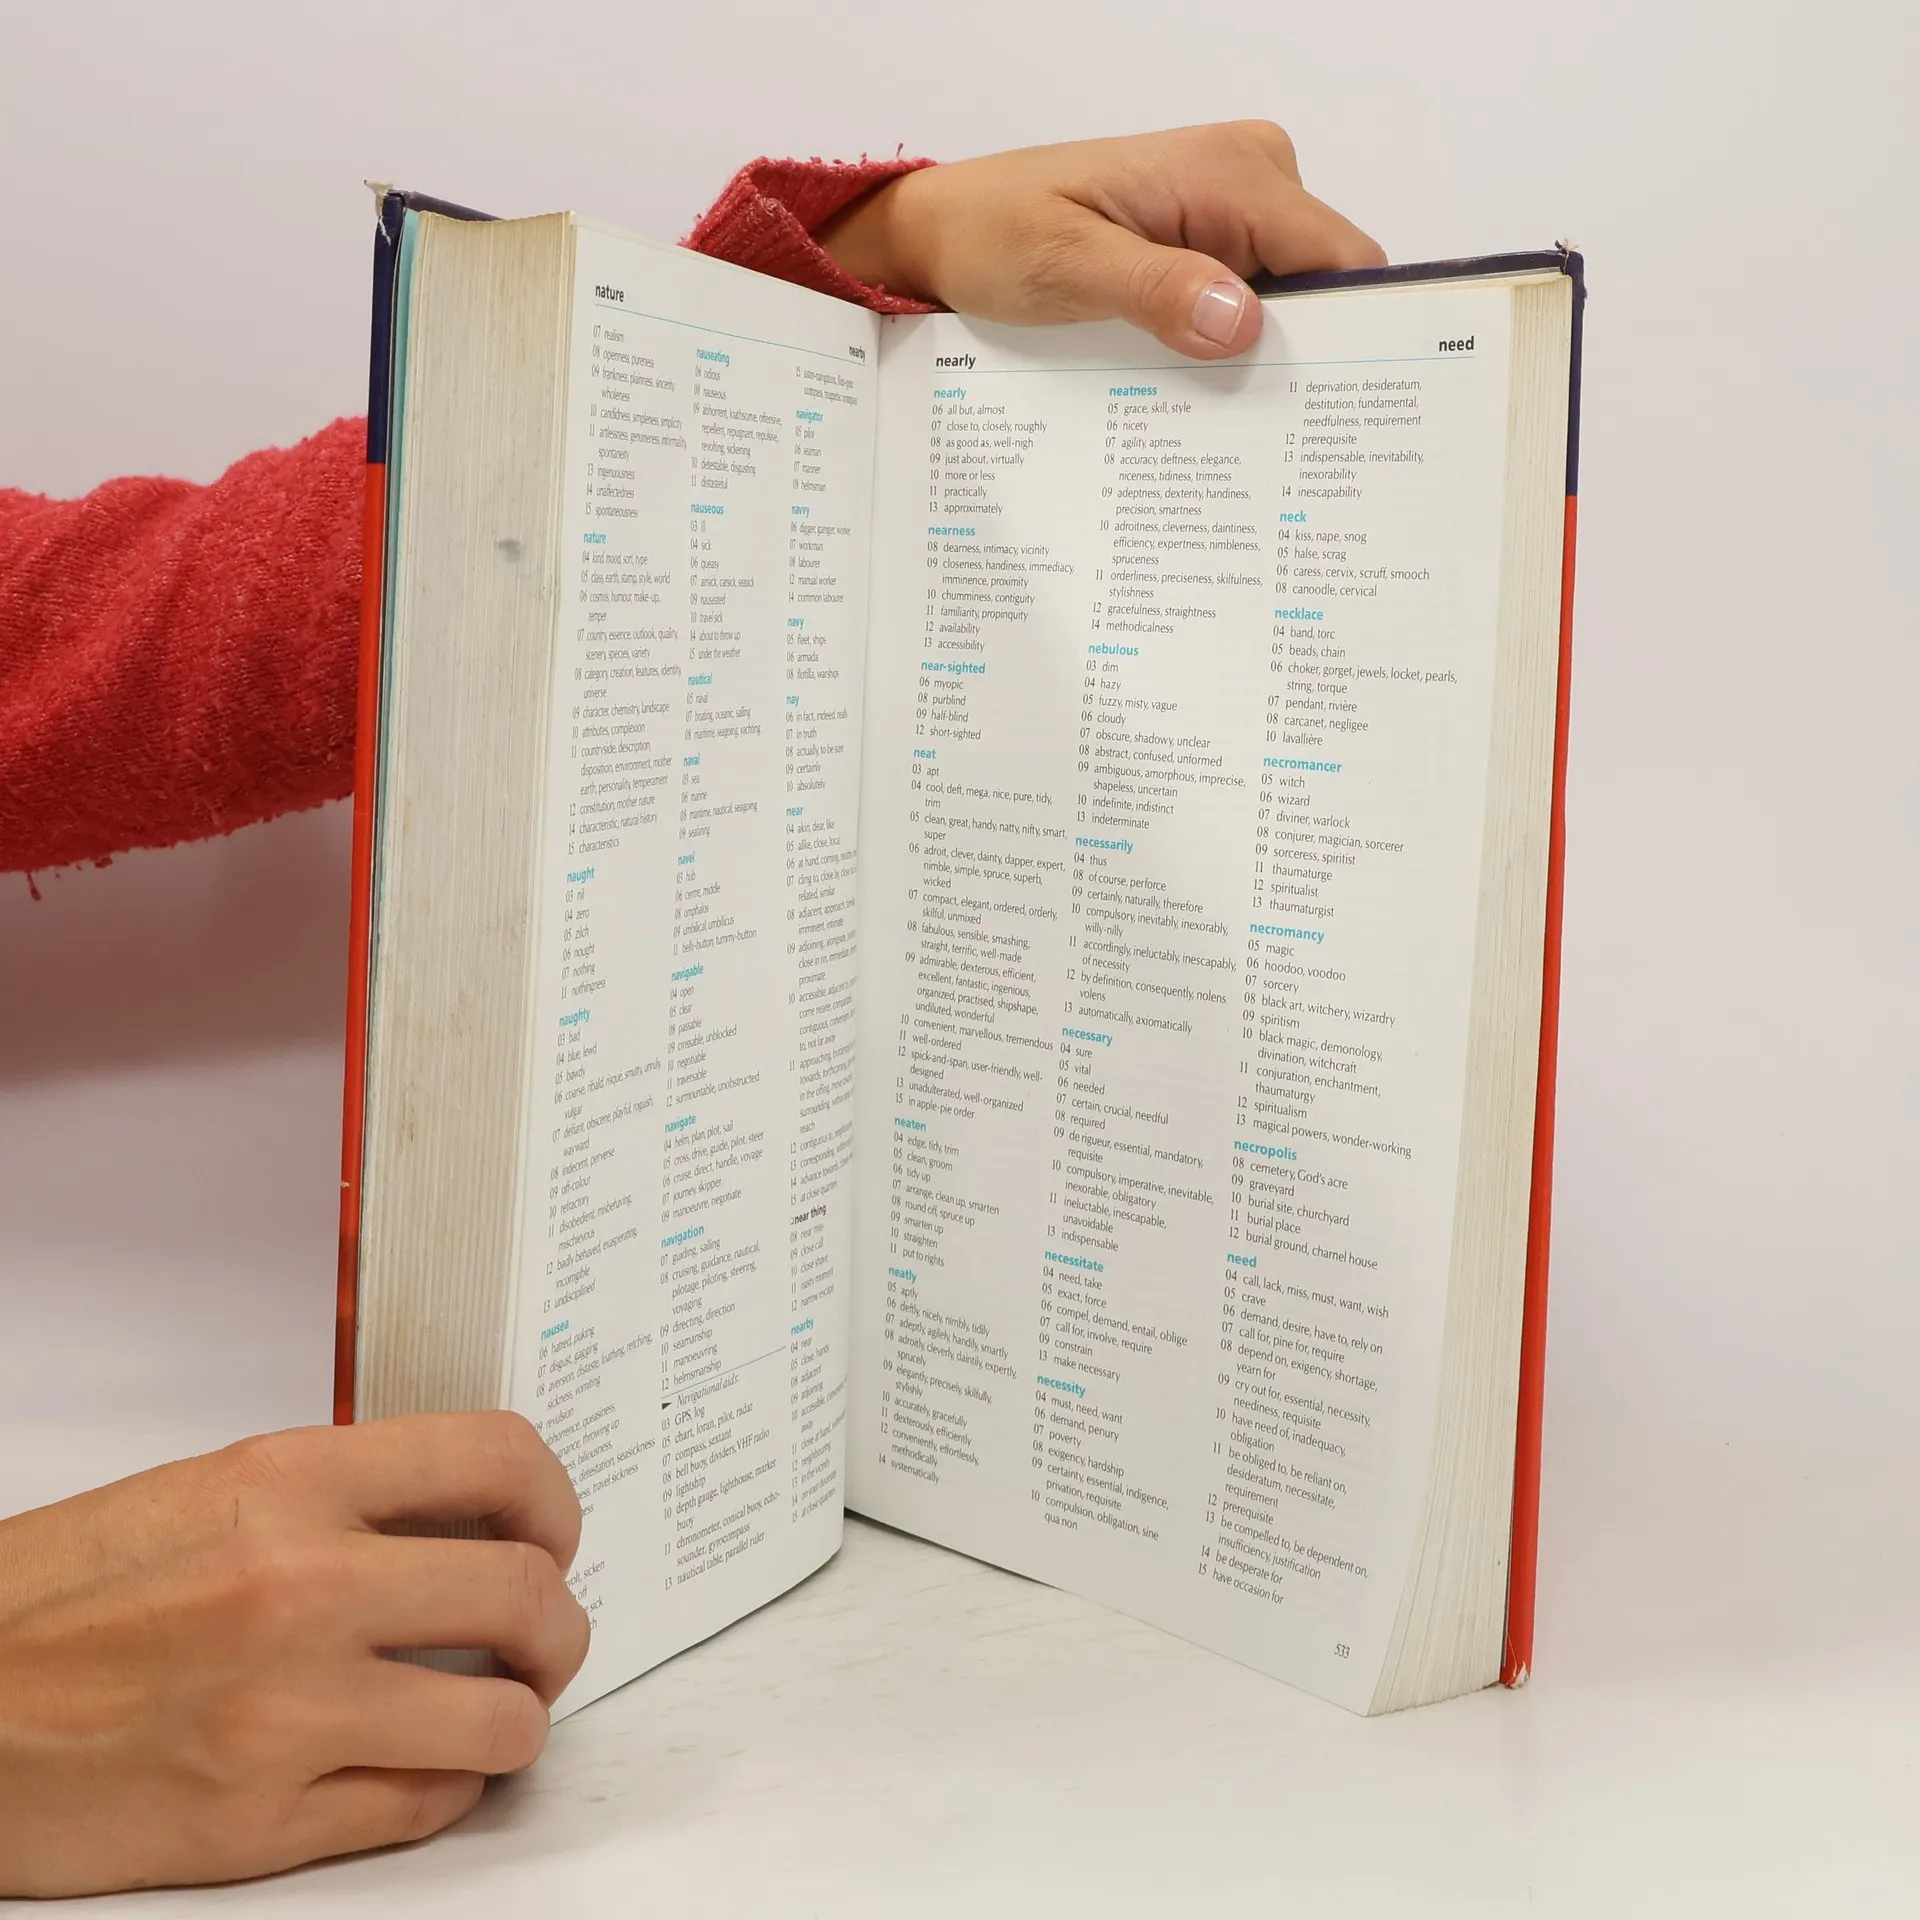 nature
nearby
07 realism
08 openness, pureness
09 frankness, plainness, sincerity,
wholeness
10 candidness, simpleness, simplicity
11 artlessness, genuineness, informality,
spontaneity
13 ingenuousness
14 unaffectedness
15 spontaneousness
nature
04 kind, mood, sort, type
05 class, earth, stamp, style, world
06 cosmos, humour, make-up,
temper
07 country, essence, outlook, quality,
scenery, species, variety
08 category, creation, features, identity,
universe
09 character, chemistry, landscape
10 attributes, complexion
11 countryside, description,
disposition, environment, mother
earth, personality, temperament
12 constitution, mother nature
14 characteristic, natural history
15 characteristics
naught
03 nil
04 zero
05 zilch
06 nought
07 nothing
11 nothingness
naughty
03 bad
04 blue, lewd
05 bawdy
06 coarse, ribald, risqué, smutty, unruly,
vulgar
07 defiant, obscene, playful, roguish,
wayward
08 indecent, perverse
09 off-colour
10 refractory
11 disobedient, misbehaving,
mischievous
12 badly behaved, exasperating,
incorrigible
13 undisciplined
nausea
06 hatred, puking
07 disgust, gagging
08 aversion, distaste, loathing, retching,
sickness, vomiting
09 revulsion
abhorrence, queasiness,
throwing up
biliousness,
detestation, seasickness
travel sickness
sicken
off
sick
nauseating
06 odious
08 nauseous
09 abhorrent, loathsome, offensive,
repellent, repugnant, repulsive,
revolting, sickening
10 detestable, disgusting
11 distasteful
nauseous
03 ill
04 sick
06 queasy
07 airsick, carsick, seasick
09 nauseated
10 travel sick
14 about to throw up
15 under the weather
nautical
05 naval
07 boating, oceanic, sailing
08 maritime, seagoing, yachting
naval
03 sea
06 marine
08 maritime, nautical, seagoing
09 seafaring
navel
03 hub
06 centre, middle
08 omphalos
09 umbilical, umbilicus
11 belly-button, tummy-button
navigable
04 open
05 clear
08 passable
09 crossable, unblocked
10 negotiable
11 traversable
12 surmountable, unobstructed
navigate
04 helm, plan, plot, sail
05 cross, drive, guide, pilot, steer
06 cruise, direct, handle, voyage
07 journey, skipper
09 manoeuvre, negotiate
navigation
07 guiding, sailing
08 cruising, guidance, nautical,
pilotage, piloting, steering,
voyaging
09 directing, direction
10 seamanship
11 manoeuvring
12 helmsmanship
► Navigational aids:
03 GPS, log
05 chart, loran, pilot, radar
07 compass, sextant
08 bell buoy, dividers, VHF radio
09 lightship
10 depth gauge, lighthouse, marker
buoy
11 chronometer, conical buoy, echo-
sounder, gyrocompass
13 nautical table, parallel ruler
15 astro-navigation, flux-gate
compass, magnetic compass
navigator
05 pilot
06 seaman
07 mariner
08 helmsman
navvy
06 digger, ganger, worker
07 workman
08 labourer
12 manual worker
14 common labourer
navy
05 fleet, ships
06 armada
08 flotilla, warships
nay
06 in fact, indeed, really
07 in truth
08 actually, to be sure
09 certainly
10 absolutely
near
04 akin, dear, like
05 alike, close, local
06 at hand, coming,
07 cling to, close by, close to
related, similar
08 adjacent, approach,
imminent, intimate
09 adjoining, alongside,
close in on, immediate,
proximate
10 accessible, adjacent to,
come nearer, comparable,
contiguous, convenient,
to, not far away
11 approaching,
towards, forthcoming,
in the offing,
surrounding, within
reach
12 contiguous to,
13 corresponding,
14 advance towards,
15 at close quarters
near thing
08 near miss
09 close call
10 close shave
11 nasty moment
12 narrow escape
nearby
04 near
05 close, handy
08 adjacent
09 adjoining
10 accessible,
away
11 close at hand,
12 neighbouring
13 in the vicinity
14 on your doorstep
15 at close quarters
nearly
need
nearly
06 all but, almost
07 close to, closely, roughly
08 as good as, well-nigh
09 just about, virtually
10 more or less
11 practically
13 approximately
nearness
08 dearness, intimacy, vicinity
09 closeness, handiness, immediacy,
imminence, proximity
10 chumminess, contiguity
11 familiarity, propinquity
12 availability
13 accessibility
near-sighted
06 myopic
08 purblind
09 half-blind
12 short-sighted
neat
03 apt
04 cool, deft, mega, nice, pure, tidy,
trim
05 clean, great, handy, natty, nifty, smart,
super
06 adroit, clever, dainty, dapper, expert,
nimble, simple, spruce, superb,
wicked
07 compact, elegant, ordered, orderly,
skilful, unmixed
08 fabulous, sensible, smashing,
straight, terrific, well-made
09 admirable, dexterous, efficient,
excellent, fantastic, ingenious,
organized, practised, shipshape,
undiluted, wonderful
10 convenient, marvellous, tremendous
11 well-ordered
12 spick-and-span, user-friendly, well-
designed
13 unadulterated, well-organized
15 in apple-pie order
neaten
04 edge, tidy, trim
05 clean, groom
06 tidy up
07 arrange, clean up, smarten
08 round off, spruce up
09 smarten up
10 straighten
11 put to rights
neatly
05 aptly
06 deftly, nicely, nimbly, tidily
07 adeptly, agilely, handily, smartly
08 adroitly, cleverly, daintily, expertly,
sprucely
09 elegantly, precisely, skilfully,
stylishly
10 accurately, gracefully
11 dexterously, efficiently
12 conveniently, effortlessly,
methodically
14 systematically
neatness
05 grace, skill, style
06 nicety
07 agility, aptness
08 accuracy, deftness, elegance,
niceness, tidiness, trimness
09 adeptness, dexterity, handiness,
precision, smartness
10 adroitness, cleverness, daintiness,
efficiency, expertness, nimbleness,
spruceness
11 orderliness, preciseness, skilfulness,
stylishness
12 gracefulness, straightness
14 methodicalness
nebulous
03 dim
04 hazy
05 fuzzy, misty, vague
06 cloudy
07 obscure, shadowy, unclear
08 abstract, confused, unformed
09 ambiguous, amorphous, imprecise,
shapeless, uncertain
10 indefinite, indistinct
13 indeterminate
necessarily
04 thus
08 of course, perforce
09 certainly, naturally, therefore
10 compulsory, inevitably, inexorably,
willy-nilly
11 accordingly, ineluctably, inescapably,
of necessity
12 by definition, consequently, nolens
volens
13 automatically, axiomatically
necessary
04 sure
05 vital
06 needed
07 certain, crucial, needful
08 required
09 de rigueur, essential, mandatory,
requisite
10 compulsory, imperative, inevitable,
inexorable, obligatory
11 ineluctable, inescapable,
unavoidable
13 indispensable
necessitate
04 need, take
05 exact, force
06 compel, demand, entail, oblige
07 call for, involve, require
09 constrain
13 make necessary
necessity
04 must, need, want
06 demand, penury
07 poverty
08 exigency, hardship
09 certainty, essential, indigence,
privation, requisite
10 compulsion, obligation, sine
qua non
11 deprivation, desideratum,
destitution, fundamental,
needfulness, requirement
12 prerequisite
13 indispensable, inevitability,
inexorability
14 inescapability
neck
04 kiss, nape, snog
05 halse, scrag
06 caress, cervix, scruff, smooch
08 canoodle, cervical
necklace
04 band, torc
05 beads, chain
06 choker, gorget, jewels, locket, pearls,
string, torque
07 pendant, rivière
08 carcanet, negligee
10 lavallière
necromancer
05 witch
06 wizard
07 diviner, warlock
08 conjurer, magician, sorcerer
09 sorceress, spiritist
11 thaumaturge
12 spiritualist
13 thaumaturgist
necromancy
05 magic
06 hoodoo, voodoo
07 sorcery
08 black art, witchery, wizardry
09 spiritism
10 black magic, demonology,
divination, witchcraft
11 conjuration, enchantment,
thaumaturgy
12 spiritualism
13 magical powers, wonder-working
necropolis
08 cemetery, God's acre
09 graveyard
10 burial site, churchyard
11 burial place
12 burial ground, charnel house
need
04 call, lack, miss, must, want, wish
05 crave
06 demand, desire, have to, rely on
07 call for, pine for, require
08 depend on, exigency, shortage,
yearn for
09 cry out for, essential, necessity,
neediness, requisite
10 have need of, inadequacy,
obligation
11 be obliged to, be reliant on,
desideratum, necessitate,
requirement
12 prerequisite
13 be compelled to, be dependent on,
insufficiency, justification
14 be desperate for
15 have occasion for
533